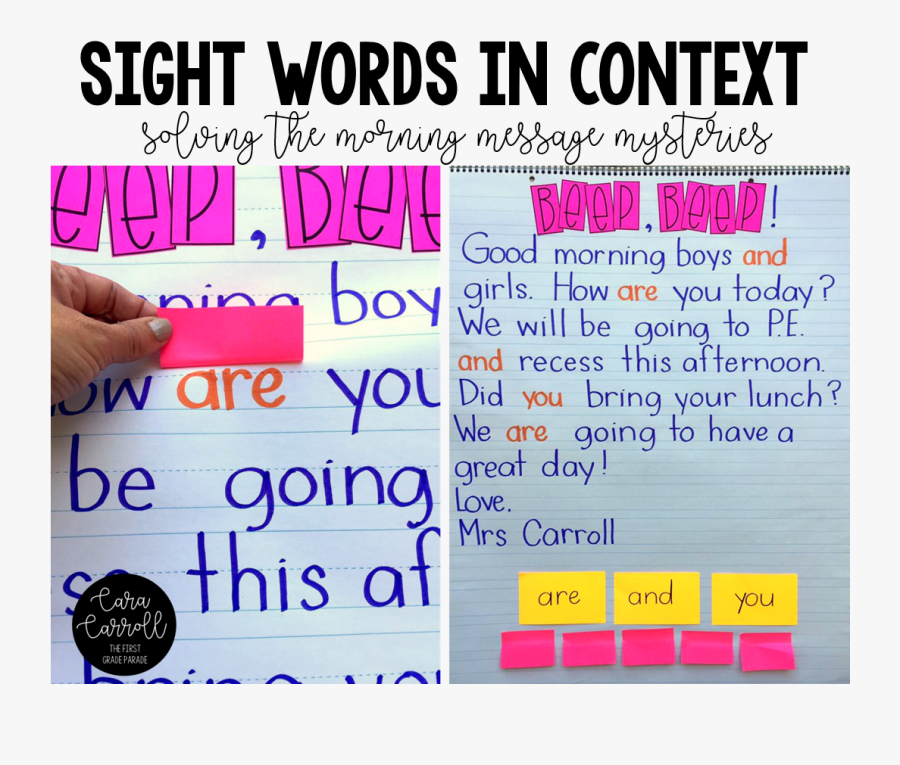 SIGHT WORDS IN CONTEXT
solving the morning message mysteries
EEP, BEE
ning boy
ow are you
be going
so this af
bring you
Cara
Carroll
THE FIRST
GRADE PARADE
BEEP, BEEP!
Good morning boys and
girls. How are you today?
We will be going to P.E.
and recess this afternoon.
Did you bring your lunch?
We are going to have a
great day!
Love.
Mrs Carroll
are and you